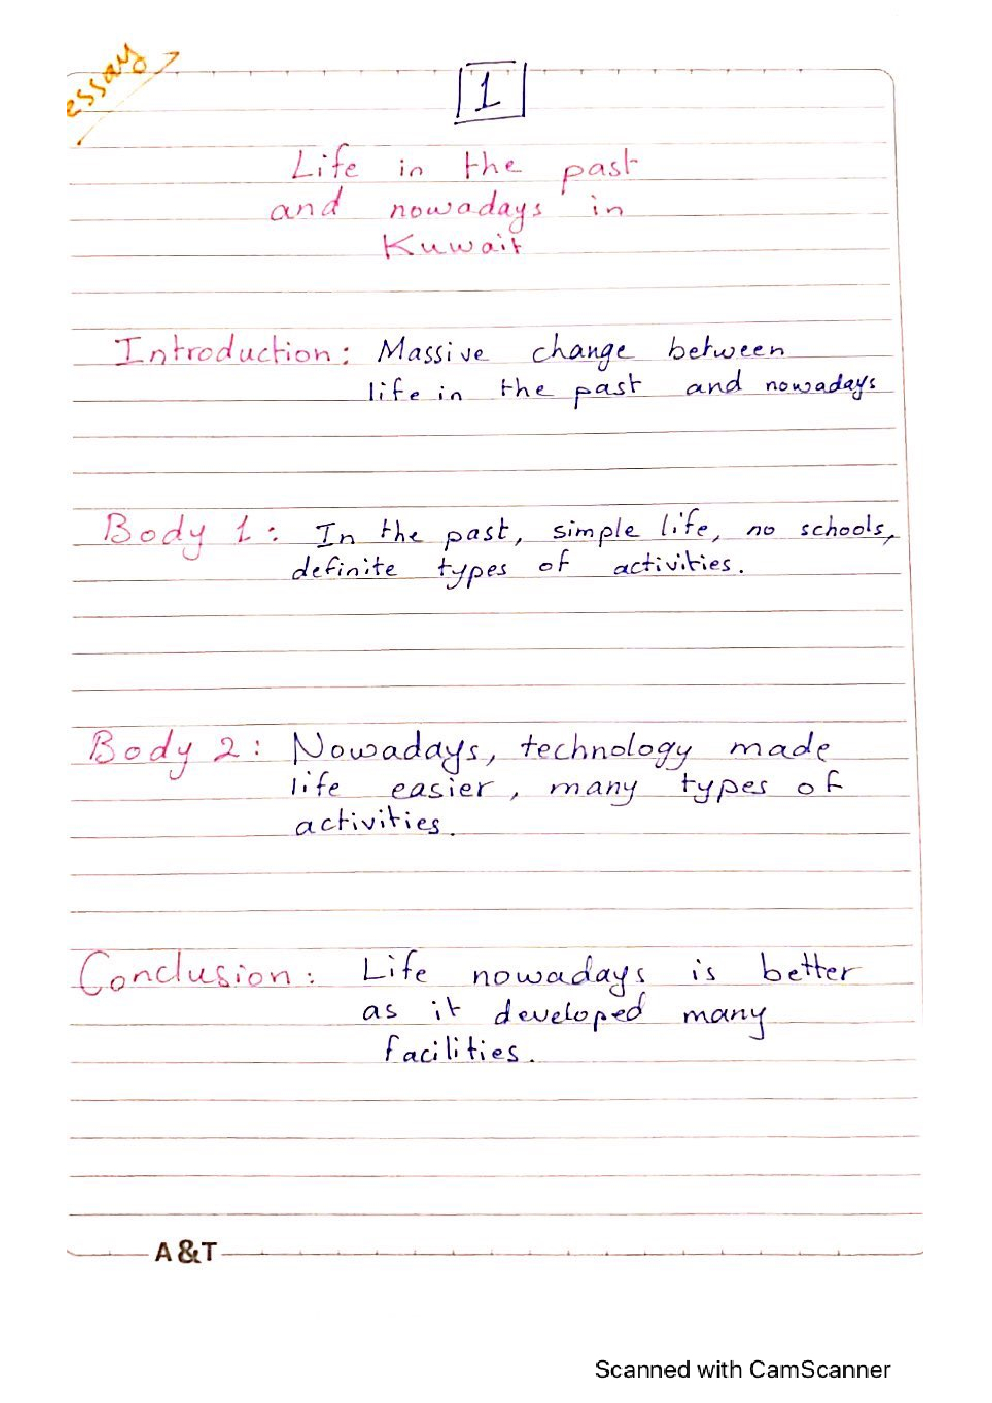 essay
1
Life in the past
and nowadays in
Kuwait
Introduction: Massive change between
life in the past and nowadays
Body 1: In the past, simple life, no schools,
definite types of activities.
Body 2: Nowadays, technology made
life easier, many types of
activities.
Conclusion: Life nowadays is better
as it developed many
facilities.
A&T
Scanned with CamScanner